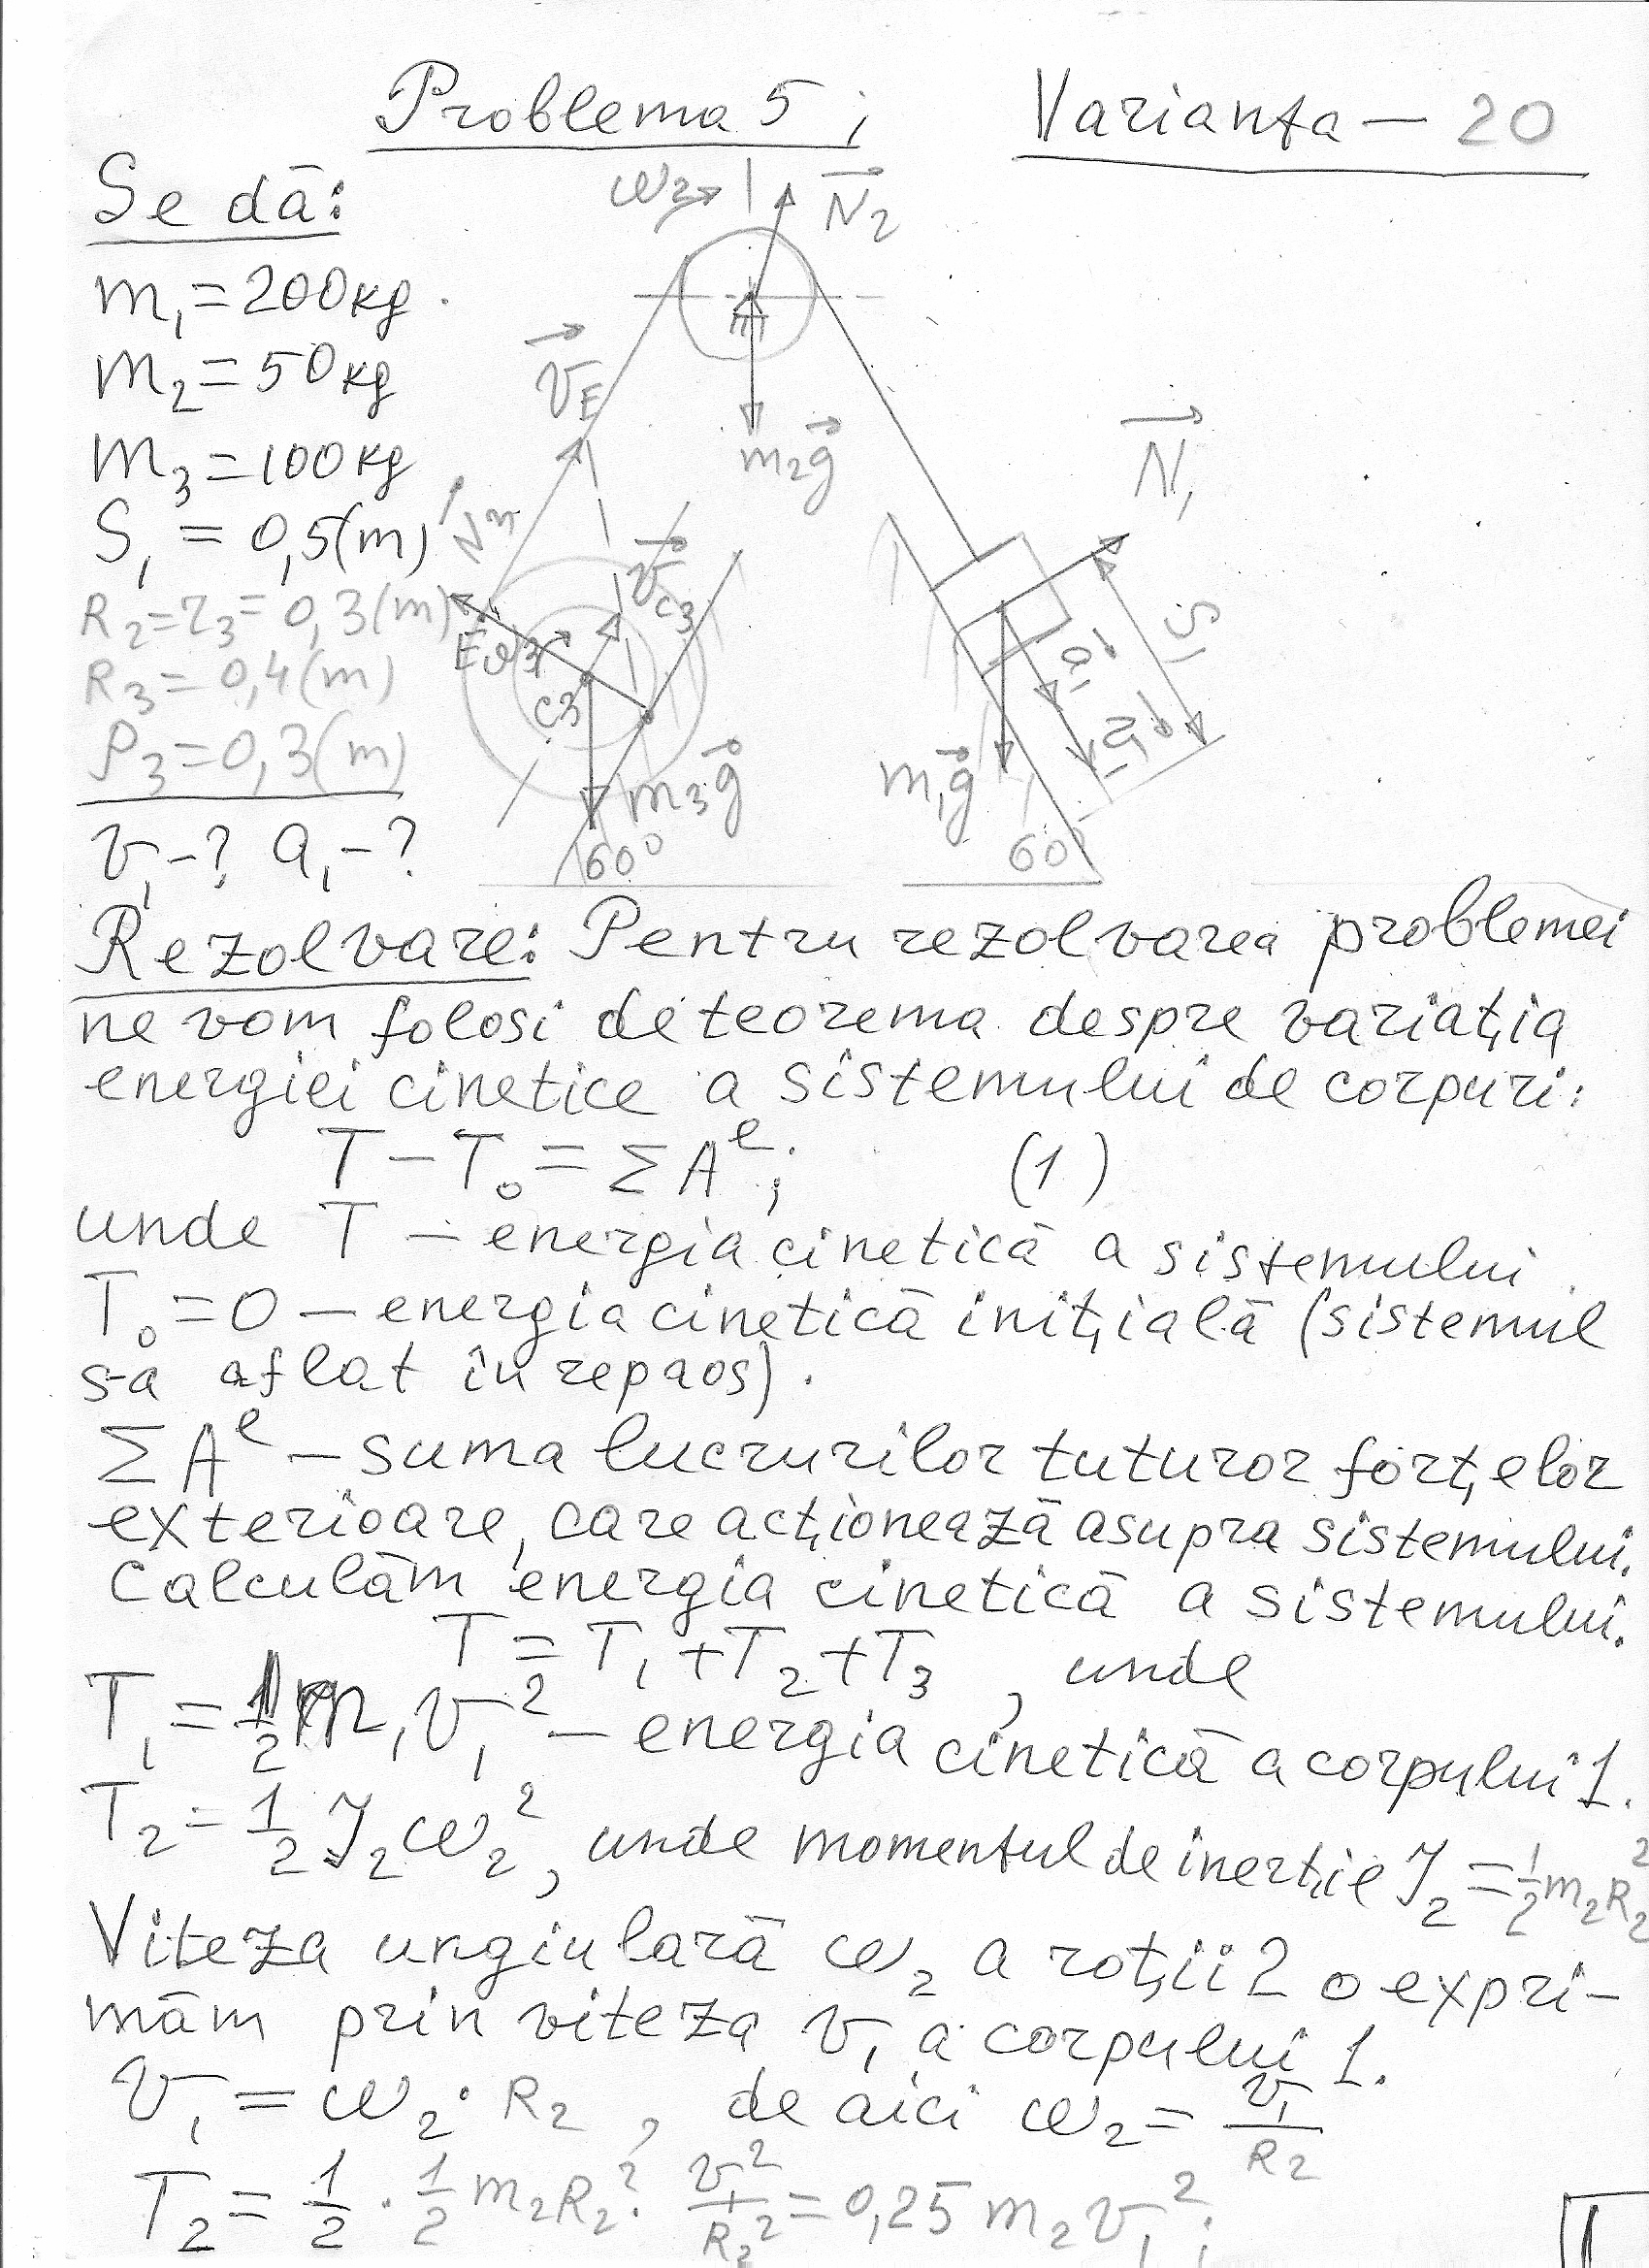 Problema 5; Varianta – 20
Se dă:
m₁ = 200 kg
m₂ = 50 kg
m₃ = 100 kg
S₁ = 0,5 (m)
R₂ = r₃ = 0,3 (m)
R₃ = 0,4 (m)
ρ₃ = 0,3 (m)
v₁ - ? a₁ - ?
ω₂
N₂
v_E
m₂g
N₁
v_C₃
E
C₃
m₃g
60°
S₁
a₁
v₁
m₁g
60°
Rezolvare: Pentru rezolvarea problemei
ne vom folosi de teorema despre variația
energiei cinetice a sistemului de corpuri:
T – T₀ = ΣAᵉ; (1)
unde T – energia cinetică a sistemului
T₀ = 0 – energia cinetică inițială (sistemul
s-a aflat în repaos).
ΣAᵉ – suma lucrurilor tuturor forțelor
exterioare, care acționează asupra sistemului.
Calculăm energia cinetică a sistemului.
T = T₁ + T₂ + T₃, unde
T₁ = 1/2 m₁v₁² – energia cinetică a corpului 1.
T₂ = 1/2 J₂ω₂², unde momentul de inerție J₂ = 1/2 m₂R₂²
Viteza ungiulară ω₂ a roții 2 o expri-
măm prin viteza v₁ a corpului 1.
v₁ = ω₂ · R₂, de aici ω₂ = v₁/R₂
T₂ = 1/2 · 1/2 m₂R₂² · v₁²/R₂² = 0,25 m₂v₁²;